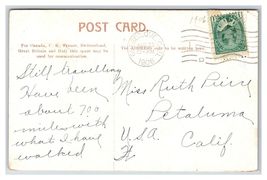 1906
POST CARD.
For Canada, U. S., France, Switzerland,
Great Britain and Italy this space may be
used for communication.
The ADDRESS only to be written here
1906
Still travelling
Have been
about 700
miles with
what I have
walked
Miss Ruth Pierce
Petaluma
U.S.A. Calif.